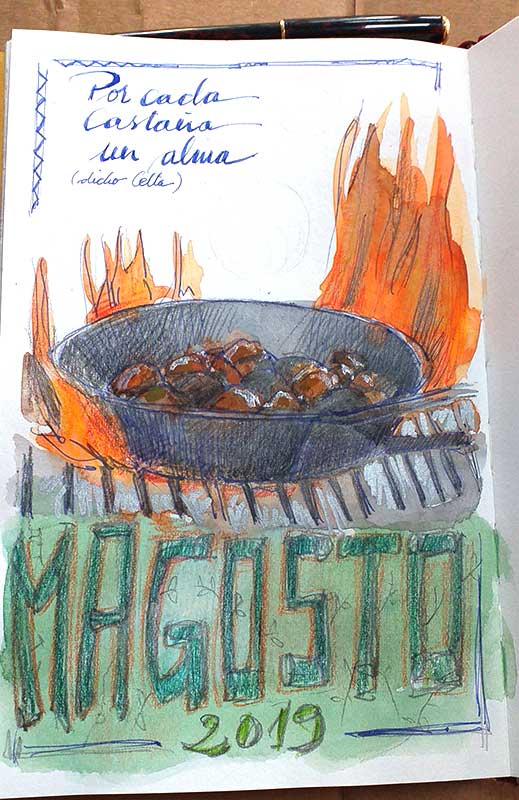 Por cada
Castaña
un alma
(dicho Celta)
MAGOSTO
2019